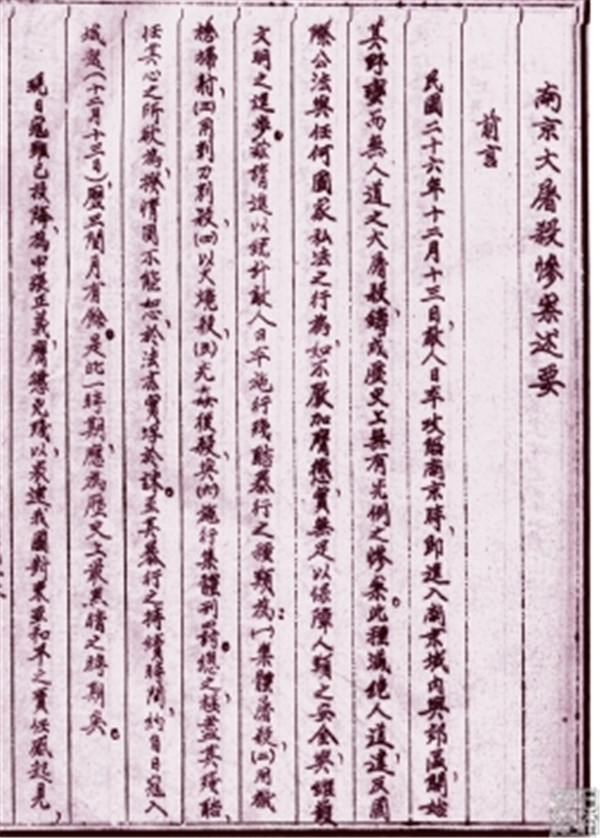 南京大屠殺慘案述要
前言
民國二十六年十二月十三日,敵人日軍攻陷南京時,即進入南京城內與郊區,開始
其野蠻而無人道之大屠殺,鑄成歷史上無有先例之慘案。此種滅絕人道,違反國
際公法與任何國家私法之行為,如不嚴加膺懲,實無足以保障人類之安全與維護
文明之進步。茲謹進以統計敵人日軍施行殘酷暴行之種類為:(一)集體屠殺,(二)用機
槍掃射,(三)用刺刀刺殺,(四)以火燒殺,(五)先姦後殺,與(六)施行集體刑罰。總之,極盡其殘酷,
任其心之所欲為,揆情固不能恕,於法亦實浮於誅。至其暴行之持續時間,約自日寇入
城起(十二月十三日),歷五閱月有餘。是此一時期,應為歷史上最黑暗之時期矣。
現日寇雖已投降,為申張正義,膺懲兇殘,以表達我國對東亞和平之責任感起見,